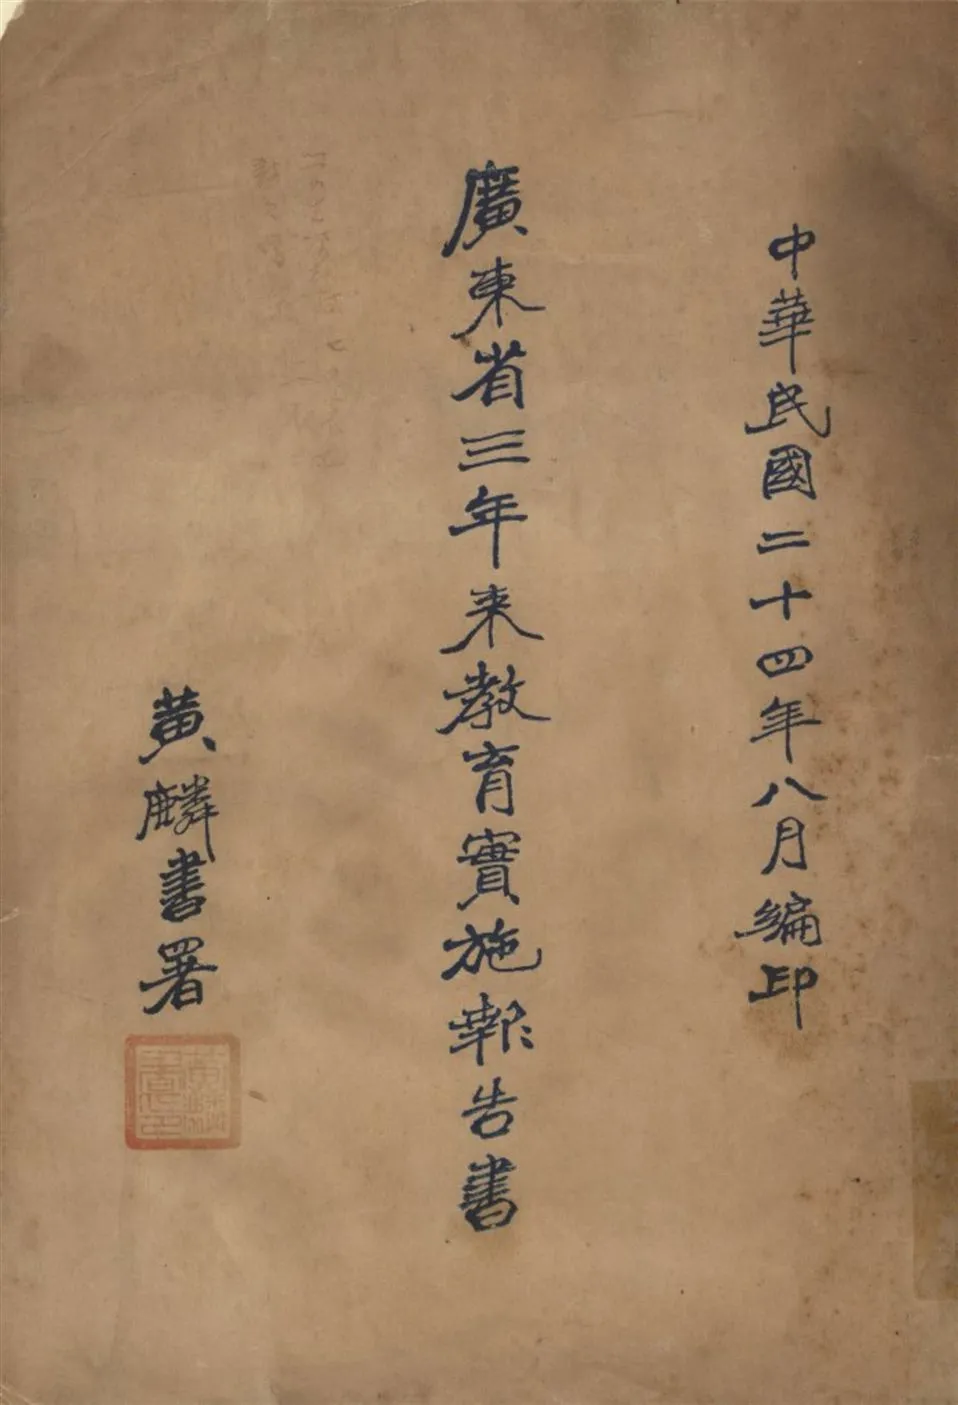 中華民國二十四年八月編印
廣東省三年来教育實施報告書
黃麟書署